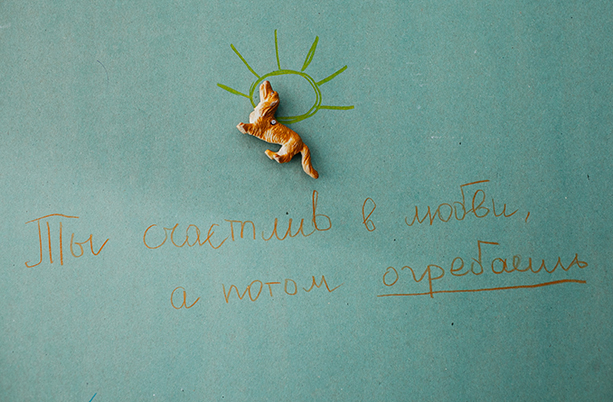 Ты счастлив в любви,
а потом огребаешь